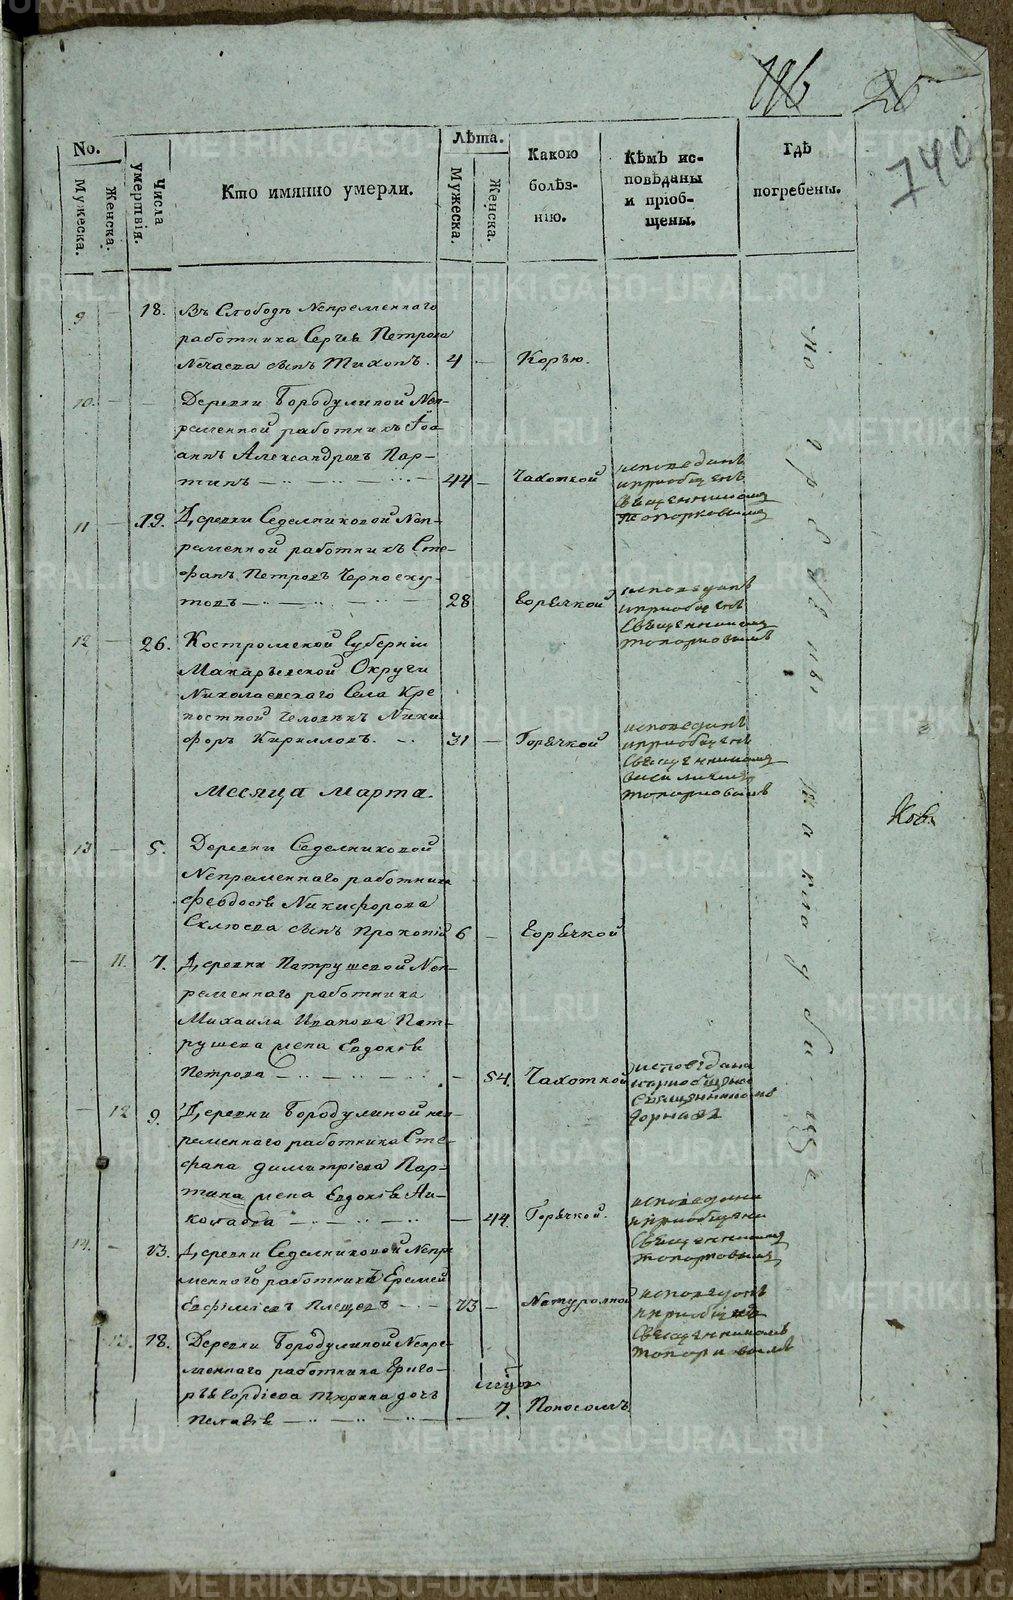 116 25
740
No.
Мужеска.
Женска.
Числа умертвія.
Кто имянно умерли.
Лѣта.
Мужеска.
Женска.
Какою
болѣз-
нію.
Кѣмъ ис-
повѣданы
и пріоб-
щены.
Гдѣ
погребены.
9 — 18. Въ Слободѣ Непременнаго
работника Сергѣя Петрова
Нечаева сынъ Тихонъ. 4 — Корью.
10. — — Деревни Бородулиной Неп-
ременной работникъ Іоа-
ннъ Александровъ Пар-
тинъ — 44 — Чахоткой
исповеданъ
и приобщенъ
Священникомъ
Топорковымъ
11 — 19. Деревни Седелниковой Неп-
ременной работникъ Сте-
фанъ Петровъ Черноску-
товъ — 28 Горячкой
исповеданъ
и приобщенъ
Священникомъ
Топорковымъ
12 — 26. Костромской Губерніи
Макарьевской Округи
Николаевскаго Села Кре
постной Человѣкъ Ники-
форъ Кирилловъ. — 31 — Горячкой
исповеданъ
и приобщенъ
Священникомъ
Топорковымъ
Месяца Марта.
13 — 5. Деревни Седелниковой
Непременнаго работника
Феодосія Никифорова
сынъ Прокопій 6 — Горячкой
— 11. 7. Деревни Патрушевой Неп-
ременнаго работника
Михаила Иванова Пат-
рушева жена Евдокія
Петрова — — 54. Чахоткой
исповедана
и приобщена
Священникомъ
— 12 9. Деревни Бородулиной неп-
ременнаго работника Сте-
фана Димитріева Пар-
тина жена Евдокія Ни-
колаева — — 44. Горячкой.
исповедана
и приобщена
Священникомъ
Топорковымъ
14. — 23. Деревни Седелниковой Непре
менной работникъ Еремей
Евфиміевъ Плещевъ — 73 — Натуралной
исповеданъ
и приобщенъ
Священникомъ
Топорковымъ
13. 18. Деревни Бородулиной Непре-
меннаго работника Григо-
рья Гордіева Тюрина дочь
Пелагія — 7. Поносомъ
На приходскомъ кладбищѣ
METRIKI.GASO-URAL.RU